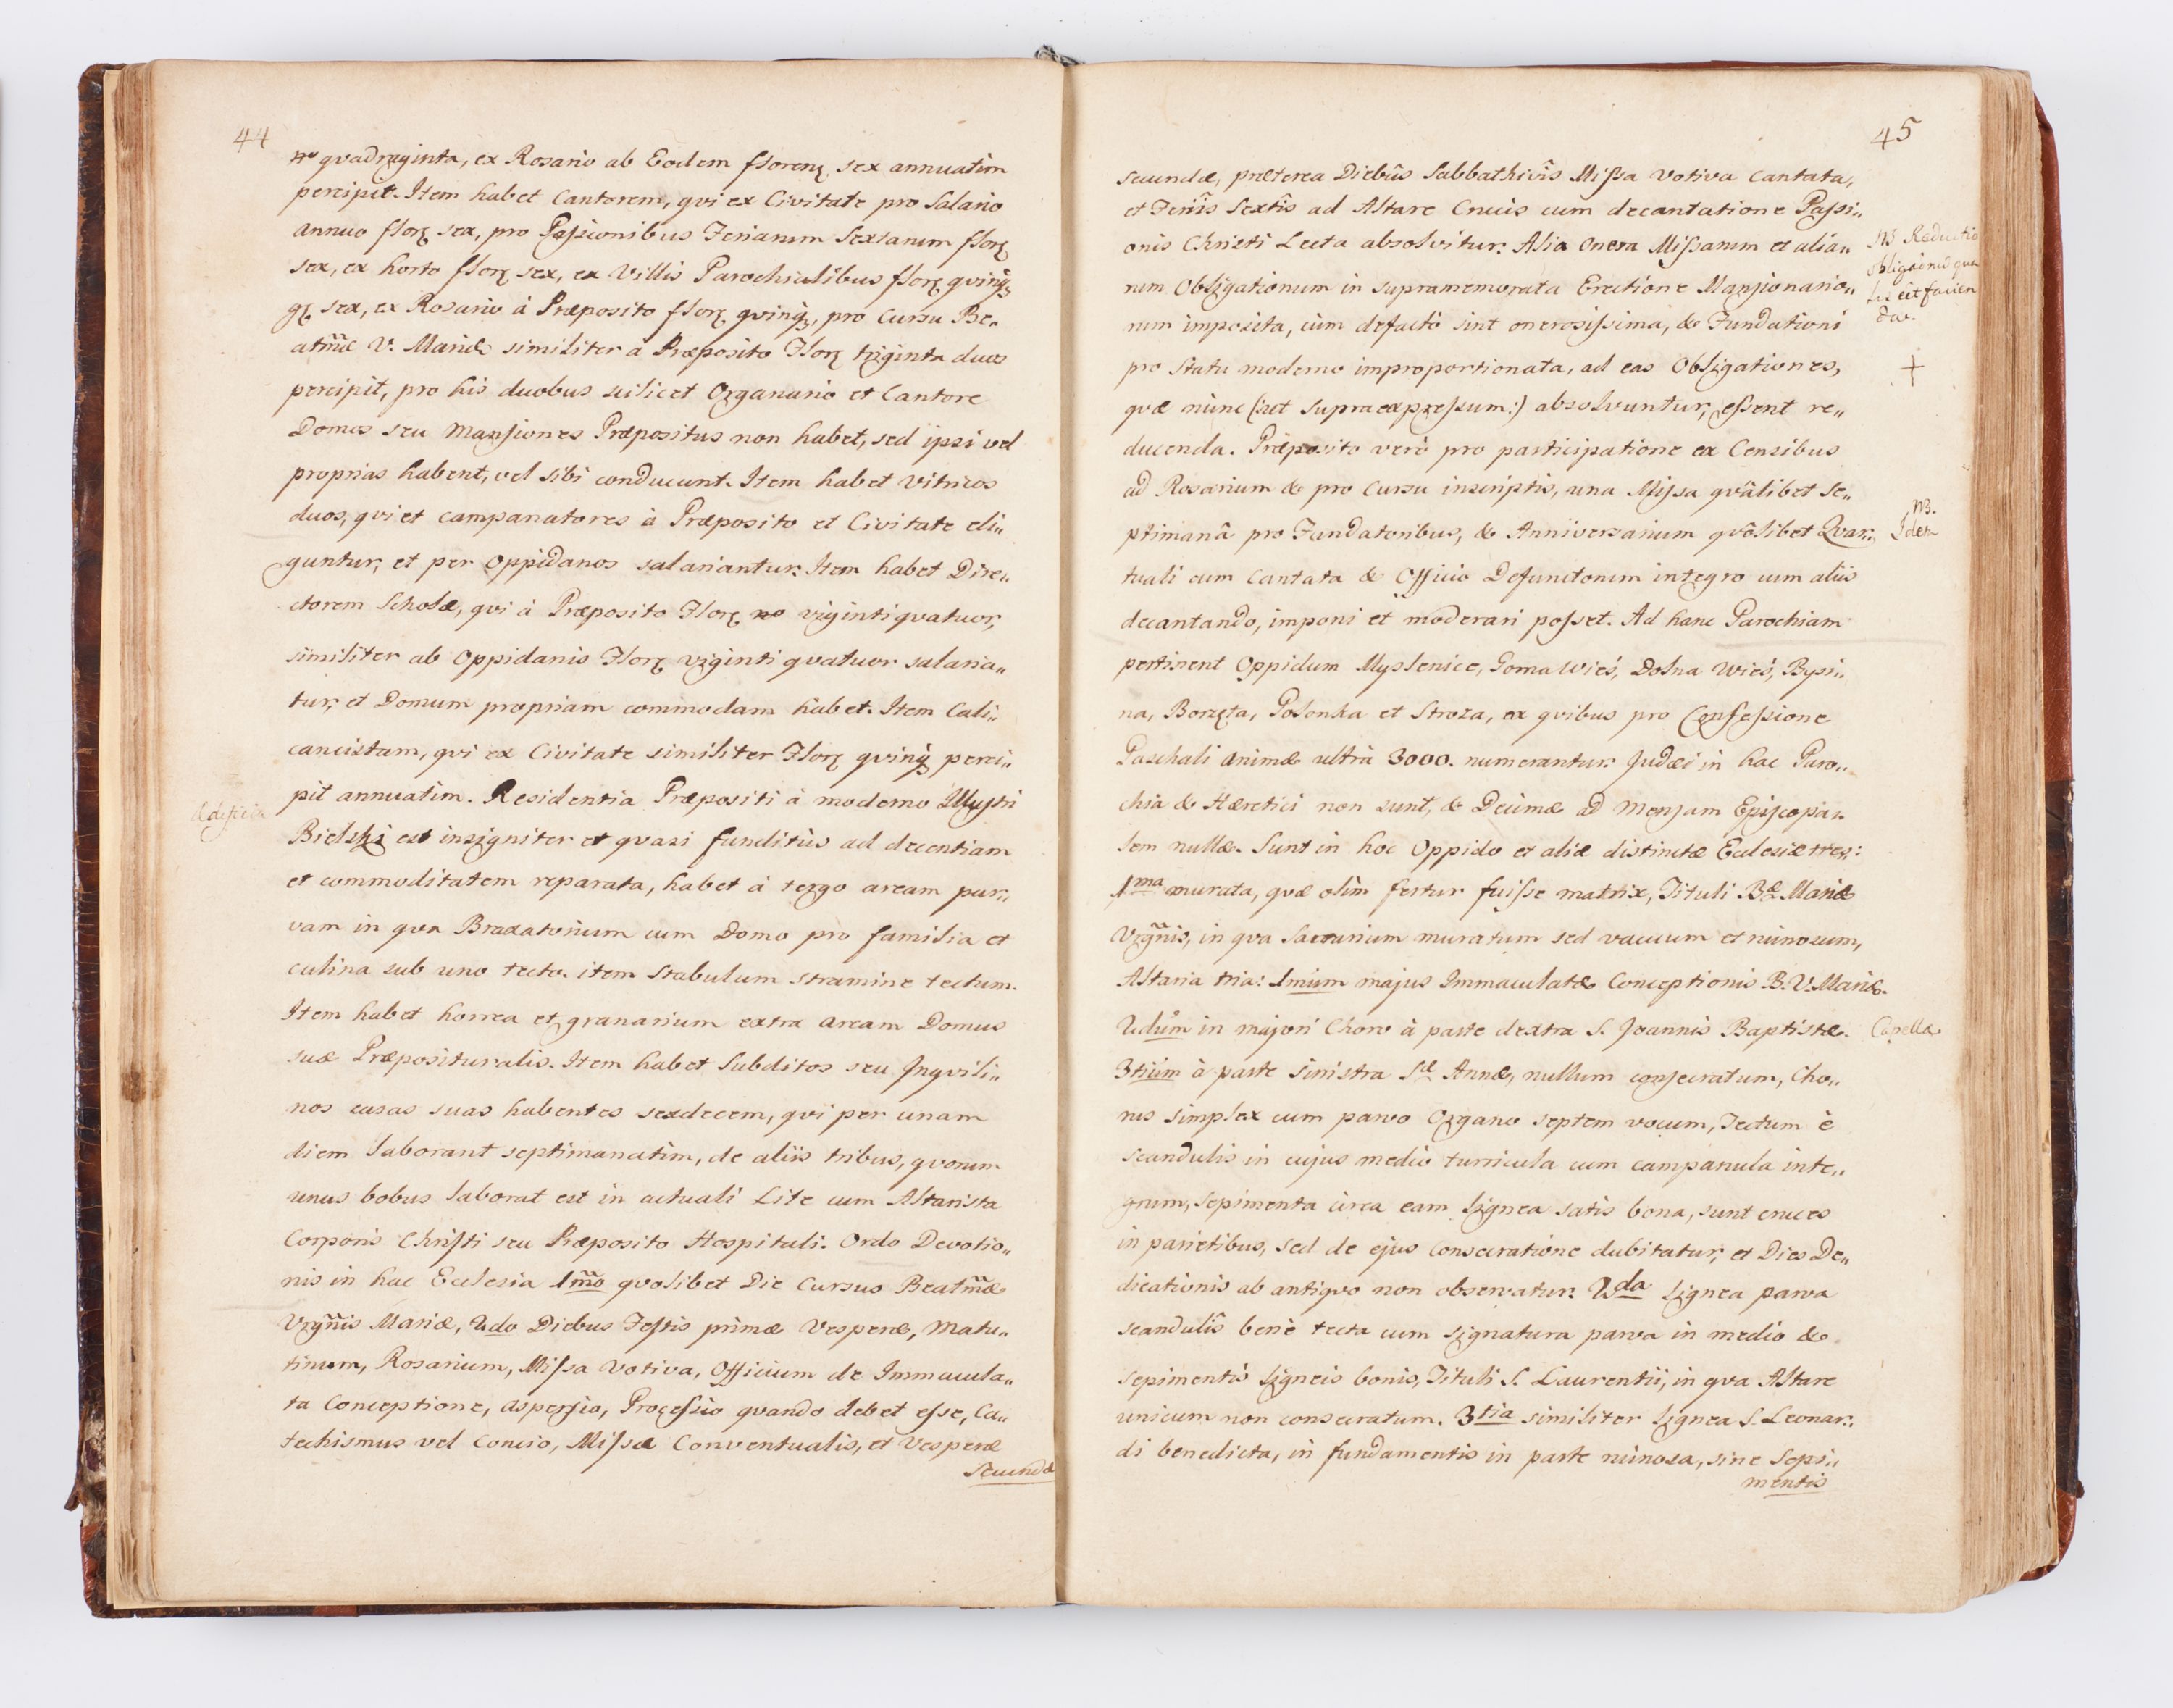 44
nro qvadraginta, ex Rosario ab Eodem floren. sex annuatim
percipit. Item habet Cantorem, qvi ex Civitate pro Salario
annuo flor. sex, pro Passionibus Feriarum Sextarum flor.
sex, ex horto flor. sex, ex Villis Parochialibus flor. qvinq
gr. sex, ex Rosario à Præposito flor. qvinq, pro Cursu Be„
atmæ V. Mariæ similiter à Præposito Flor. triginta duos
percipit, pro his duobus scilicet Organario et Cantore
Domos seu Mansiones Præpositus non habet, sed ipsi vel
proprias habent, vel sibi conducunt. Item habet Vitricos
duos, qvi et campanatores à Præposito et Civitate eli„
guntur, et per Oppidanos salariantur. Item habet Dire„
ctorem Scholæ, qvi à Præposito Flor. no viginti qvatuor,
similiter ab Oppidanis Flor. viginti qvatuor salaria„
tur, et Domum propriam commodam habet. Item Cali„
cancistam, qvi ex Civitate similiter Flor. qvinq perci„
pit annuatim. Residentia Præpositi à moderno Illustri
Ædificia
Bielski est insigniter et qvasi funditùs ad decentiam
et commoditatem reparata, habet à tergo aream par„
vam in qva Braxatorium cum Domo pro familia et
culina sub uno tecto. item Stabulum stramine tectum.
Item habet horrea et granarium extra aream Domus
suæ Præposituralis. Item habet Subditos seu Inqvili„
nos casas suas habentes sexdecem, qvi per unam
diem laborant septimanatim, de aliis tribus, qvorum
unus bobus laborat est in actuali Lite cum Altarista
Corporis Christi seu Præposito Hospitali. Ordo Devotio„
nis in hac Ecclesia 1mo qvolibet Die Cursus Beatmæ
Vrgnis Mariæ, 2do Diebus Festis primæ Vesperæ, Matu„
tinum, Rosarium, Missa Votiva, Officium de Immacula„
ta Conceptione, aspersio, Processio qvando debet esse, Ca„
techismus vel Concio, Missa Conventualis, et Vesperæ
Secundæ
45
secundæ, præterea Diebus Sabbathivis Missa Votiva Cantata,
et Feriis Sextis ad Altare Crucis cum decantatione Passi„
onis Christi Lecta absolvitur. Alia Onera Missarum et alia„
NB Reductio
obligãonis qua
lis sit facien
da.
rum Obligationum in supramemorata Erectione Mansionario„
rum imposita, cùm defactò sint onerosissima, & Fundationi
pro Statu moderno improportionata, ad eas Obligationes,
+
qvæ nunc (:ut supra expressum:) absolvuntur, essent re„
ducenda. Præposito verò pro participatione ex Censibus
ad Rosarium & pro Cursu inscriptis, una Missa qvâlibet Se„
NB.
Idem
ptimanâ pro Fundatoribus, & Anniversarium qvôlibet Qvar„
tuali cum Cantata & Officio Defunctorum integro cum aliis
decantando, imponi et moderari posset. Ad hanc Parochiam
pertinent Oppidum Myslenice, Gorna Wieś, Dolna Wieś, Bysi„
na, Borzęta, Polonka et Stroza, ex qvibus pro Confessione
Paschali animæ ultrà 3000. numerantur. Judæi in hac Paro„
chia & Hæretici non sunt, & Decimæ ad Mensam Episcopa„
lem nullæ. Sunt in hoc Oppido et aliæ distinctæ Ecclesiæ tres:
1ma murata, qvæ olim fertur fuisse matrix, Tituli Bæ Mariæ
Vrgnis, in qva Sacrarium muratum sed vacuum et ruinosum,
Altaria tria: 1mum majus Immaculatæ Conceptionis B.V. Mariæ.
2dum in majori Choro à parte dextra S. Joannis Baptistæ.
Capellæ
3tium à parte sinistra Sæ Annæ, nullum consecratum, Cho„
rus simplex cum parvo Organo septem vocum, Tectum è
scandulis in cujus medio turricula cum campanula inte„
grum, sepimenta circa eam lignea satis bona, sunt cruces
in parietibus, sed de ejus consecratione dubitatur, et Dies De„
dicationis ab antiqvo non observatur. 2da Lignea parva
scandulis benè tecta cum signatura parva in medio &
sepimentis ligneis bonis, Tituli S. Laurentii, in qva Altare
unicum non consecratum. 3tia similiter lignea S. Leonar„
di benedicta, in fundamentis in parte ruinosa, sine Sepi„
mentis